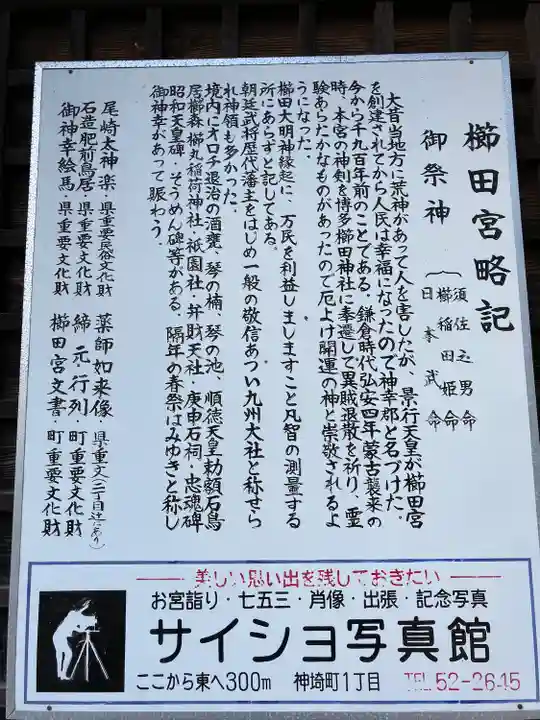 櫛田宮略記
御祭神
須佐之男命
櫛稲田姫命
日本武命
大昔当地方に荒神があって人を害したが、景行天皇が櫛田宮
を創建されてから人民は幸福になったので神幸郡と名づけた。
今から千九百年前のことである。鎌倉時代弘安四年蒙古襲来の
時、本宮の神剣を博多櫛田神社に奉遷して異賊退散を祈り、霊
験あらたかなものがあったので厄よけ開運の神と崇敬されるよ
うになった。
櫛田大明神縁起に、万民を利益しましますこと凡智の測量する
所にあらずと記してある。
朝廷武将歴代藩主をはじめ一般の敬信あつい九州大社と称せら
れ神領も多かった。
境内にオロチ退治の酒甕、琴の楠、琴の池、順徳天皇勅額石鳥
居櫛森、櫛丸稲荷神社・祇園社・弁財天社・庚申石祠。忠魂碑
昭和天皇碑、そうめん碑等がある。隔年の春祭はみゆきと称し
御神幸があって賑わう。
尾崎太神楽・県重要民俗文化財 薬師如来像・県重文(二丁目辻にあり)
石造肥前鳥居・県重要文化財 締元・行列・町重要文化財
御神幸絵馬・県重要文化財 櫛田宮文書・町重要文化財
美しい思い出を残しておきたい
お宮詣り・七五三・肖像・出張・記念写真
サイショ写真館
ここから東へ300m 神埼町1丁目 TEL52-2645